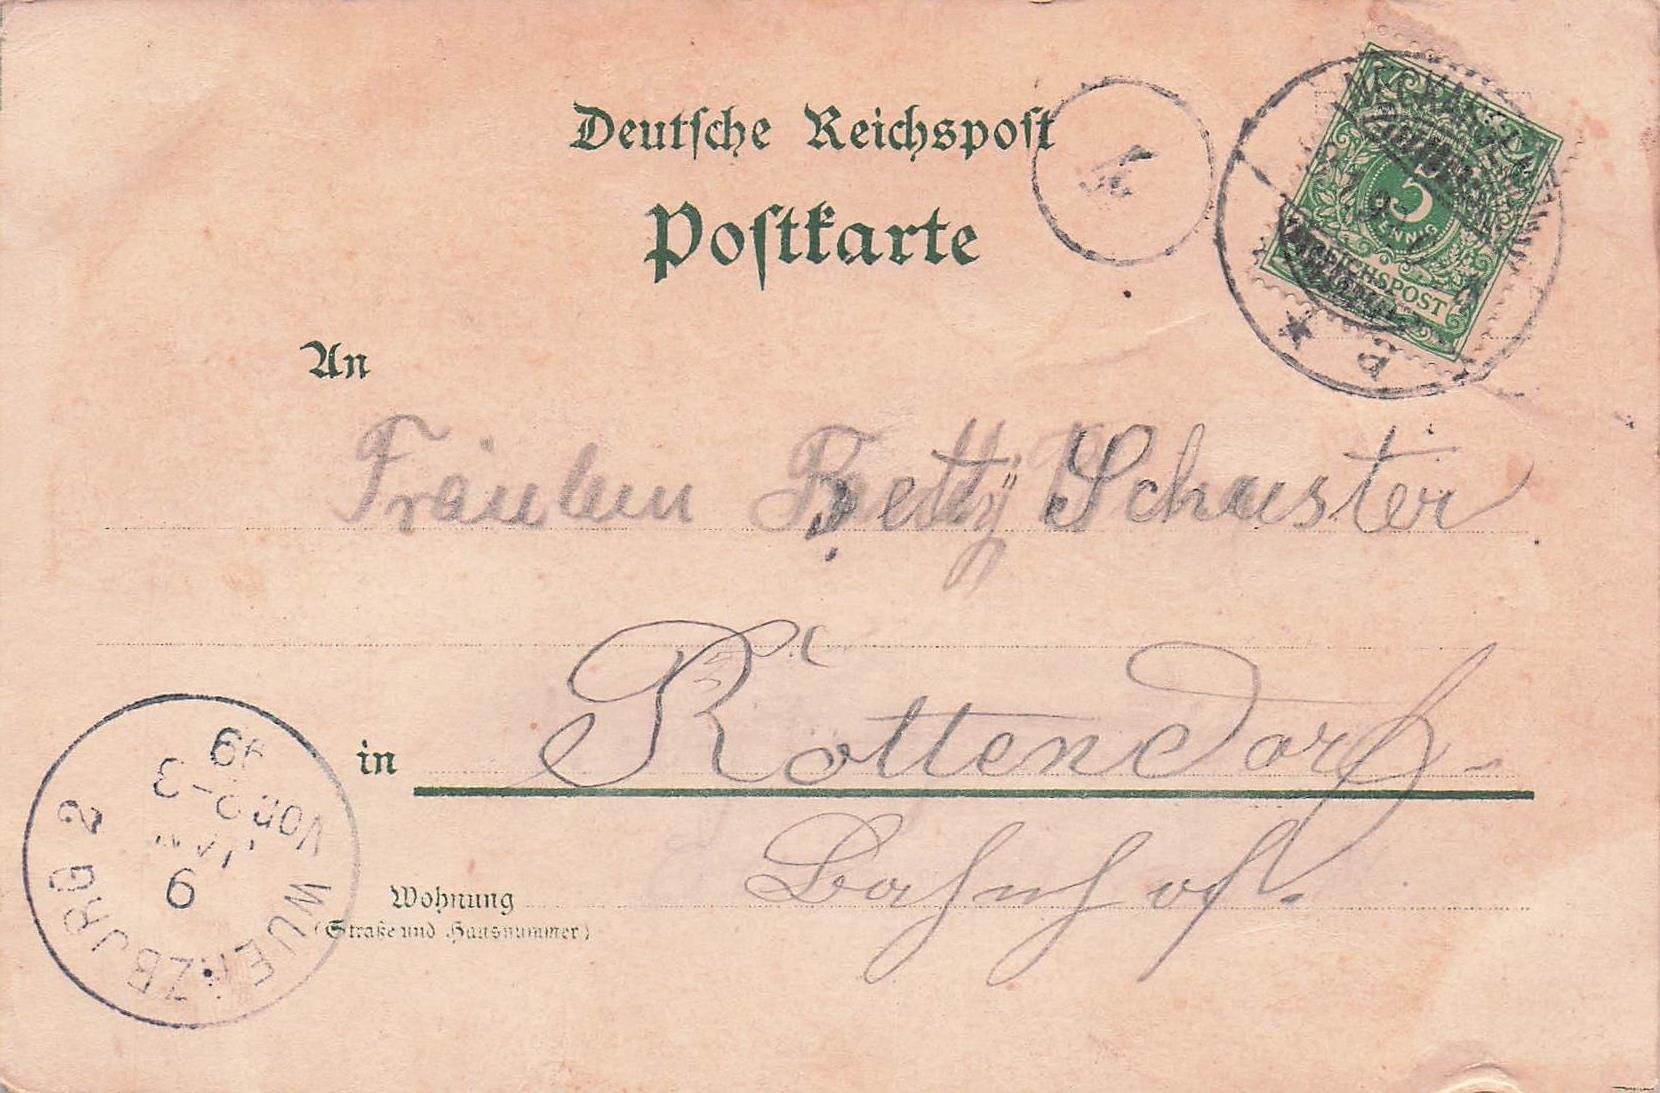 Deutsche Reichspost
Postkarte
3
PFENNIG
REICHSPOST
An
Fräulein Betty Schuster
in Rottendorf-
Bahnhof.
Wohnung
(Straße und Hausnummer)
WUERZBURG 2
9
VON 2-3
99